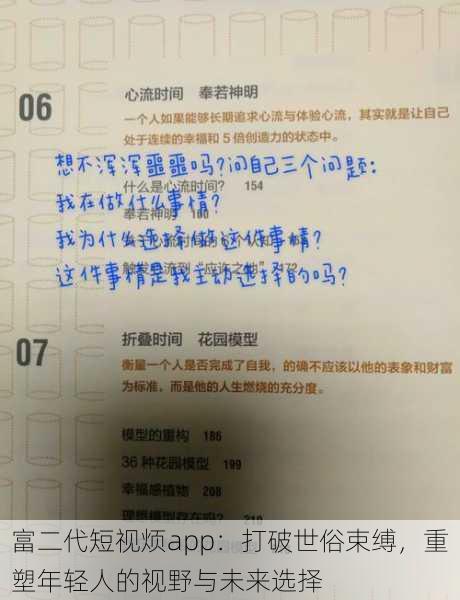 06
心流时间 奉若神明
一个人如果能够长期追求心流与体验心流，其实就是让自己
处于连续的幸福和5倍创造力的状态中。
想不浑浑噩噩吗?问自己三个问题:
什么是心流时间? 154
我在做什么事情?
奉若神明 160
我为什么选择做这件事情?
这件事情是我主动选择的吗?
07
折叠时间 花园模型
衡量一个人是否完成了自我，的确不应该以他的表象和财富
为标准，而是他的人生燃烧的充分度。
模型的重构 186
36种花园模型 199
幸福感植物 208
理想模型存在吗? 210
富二代短视烦app：打破世俗束缚，重
塑年轻人的视野与未来选择